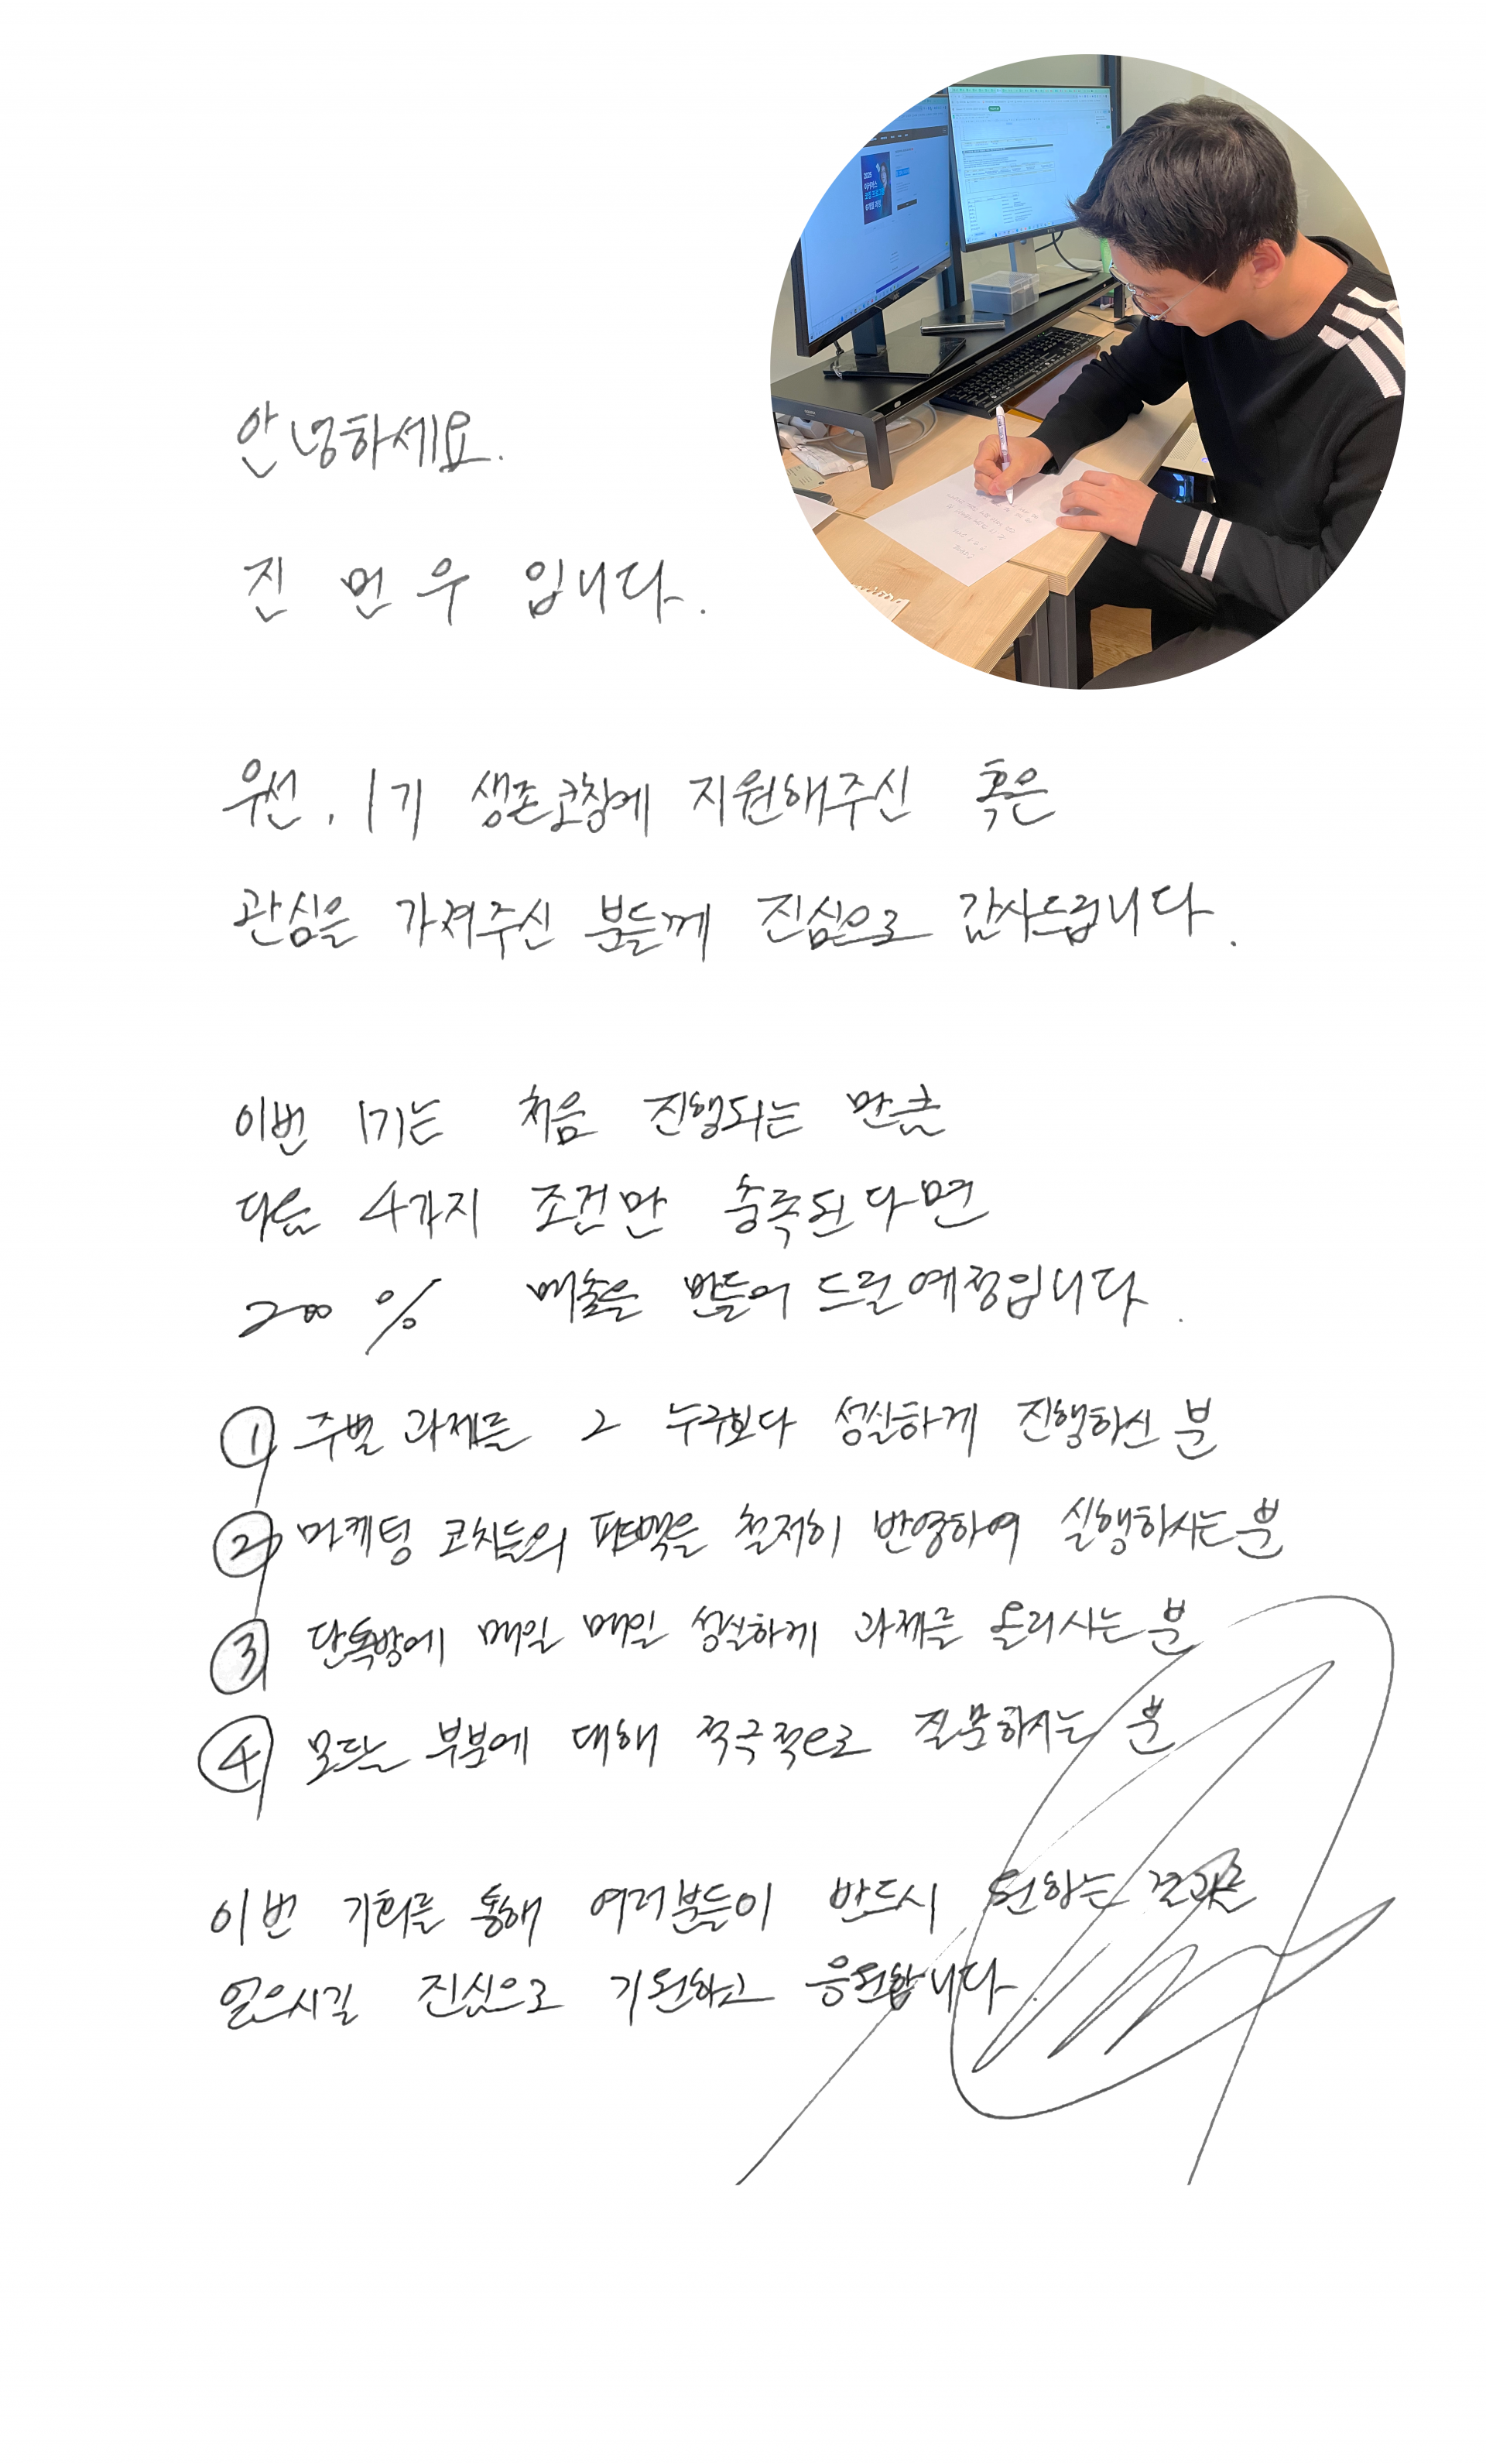 2025
안녕하세요.
진 먼 우 입니다.
우선, 1기 생존코칭에 지원해주신 혹은
관심을 가져주신 분들께 진심으로 감사드립니다.
이번 1기는 처음 진행되는 만큼
다음 4가지 조건만 충족된다면
200% 매출을 만들어 드릴 예정입니다.
① 주별 과제를 그 누구보다 성실하게 진행하신 분
② 마케팅 코치들의 피드백을 철저히 반영하여 실행하시는 분
③ 단톡방에 매일 매일 성실하게 과제를 올리시는 분
④ 모든 부분에 대해 적극적으로 질문하시는 분
이번 기회를 통해 여러분들이 반드시 원하는 결과를
얻으시길 진심으로 기원하고 응원합니다.